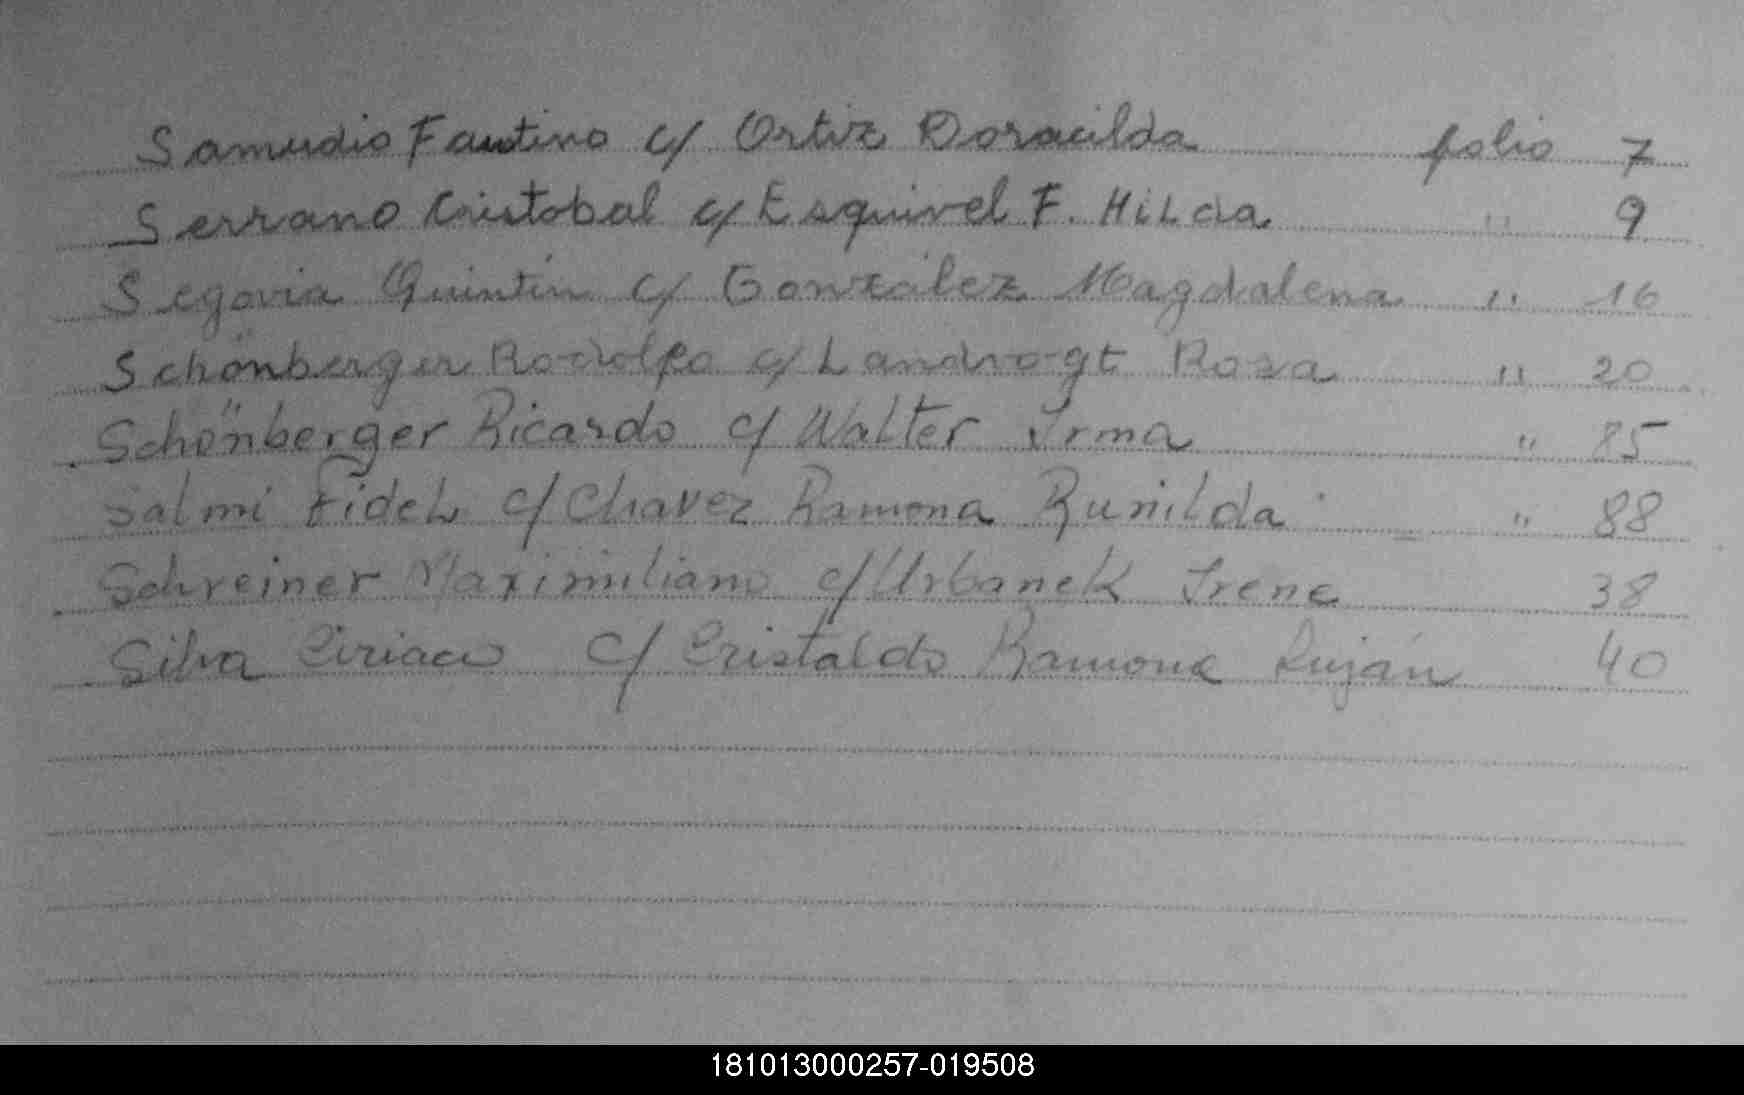 Samudio Faustino c/ Ortiz Doracilda folio 7
Serrano Cristobal c/ Esquivel F. Hilda " 9
Segovia Quintin c/ González Magdalena " 16
Schönberger Rodolfo c/ Landvogt Rosa " 20
Schönberger Ricardo c/ Walter Irma " 85
Salmi Fidel c/ Chavez Ramona Runilda " 88
Schreiner Maximiliano c/ Urbanek Irene 38
Silva Ciriaco c/ Cristaldo Ramona Luján 40
181013000257-019508